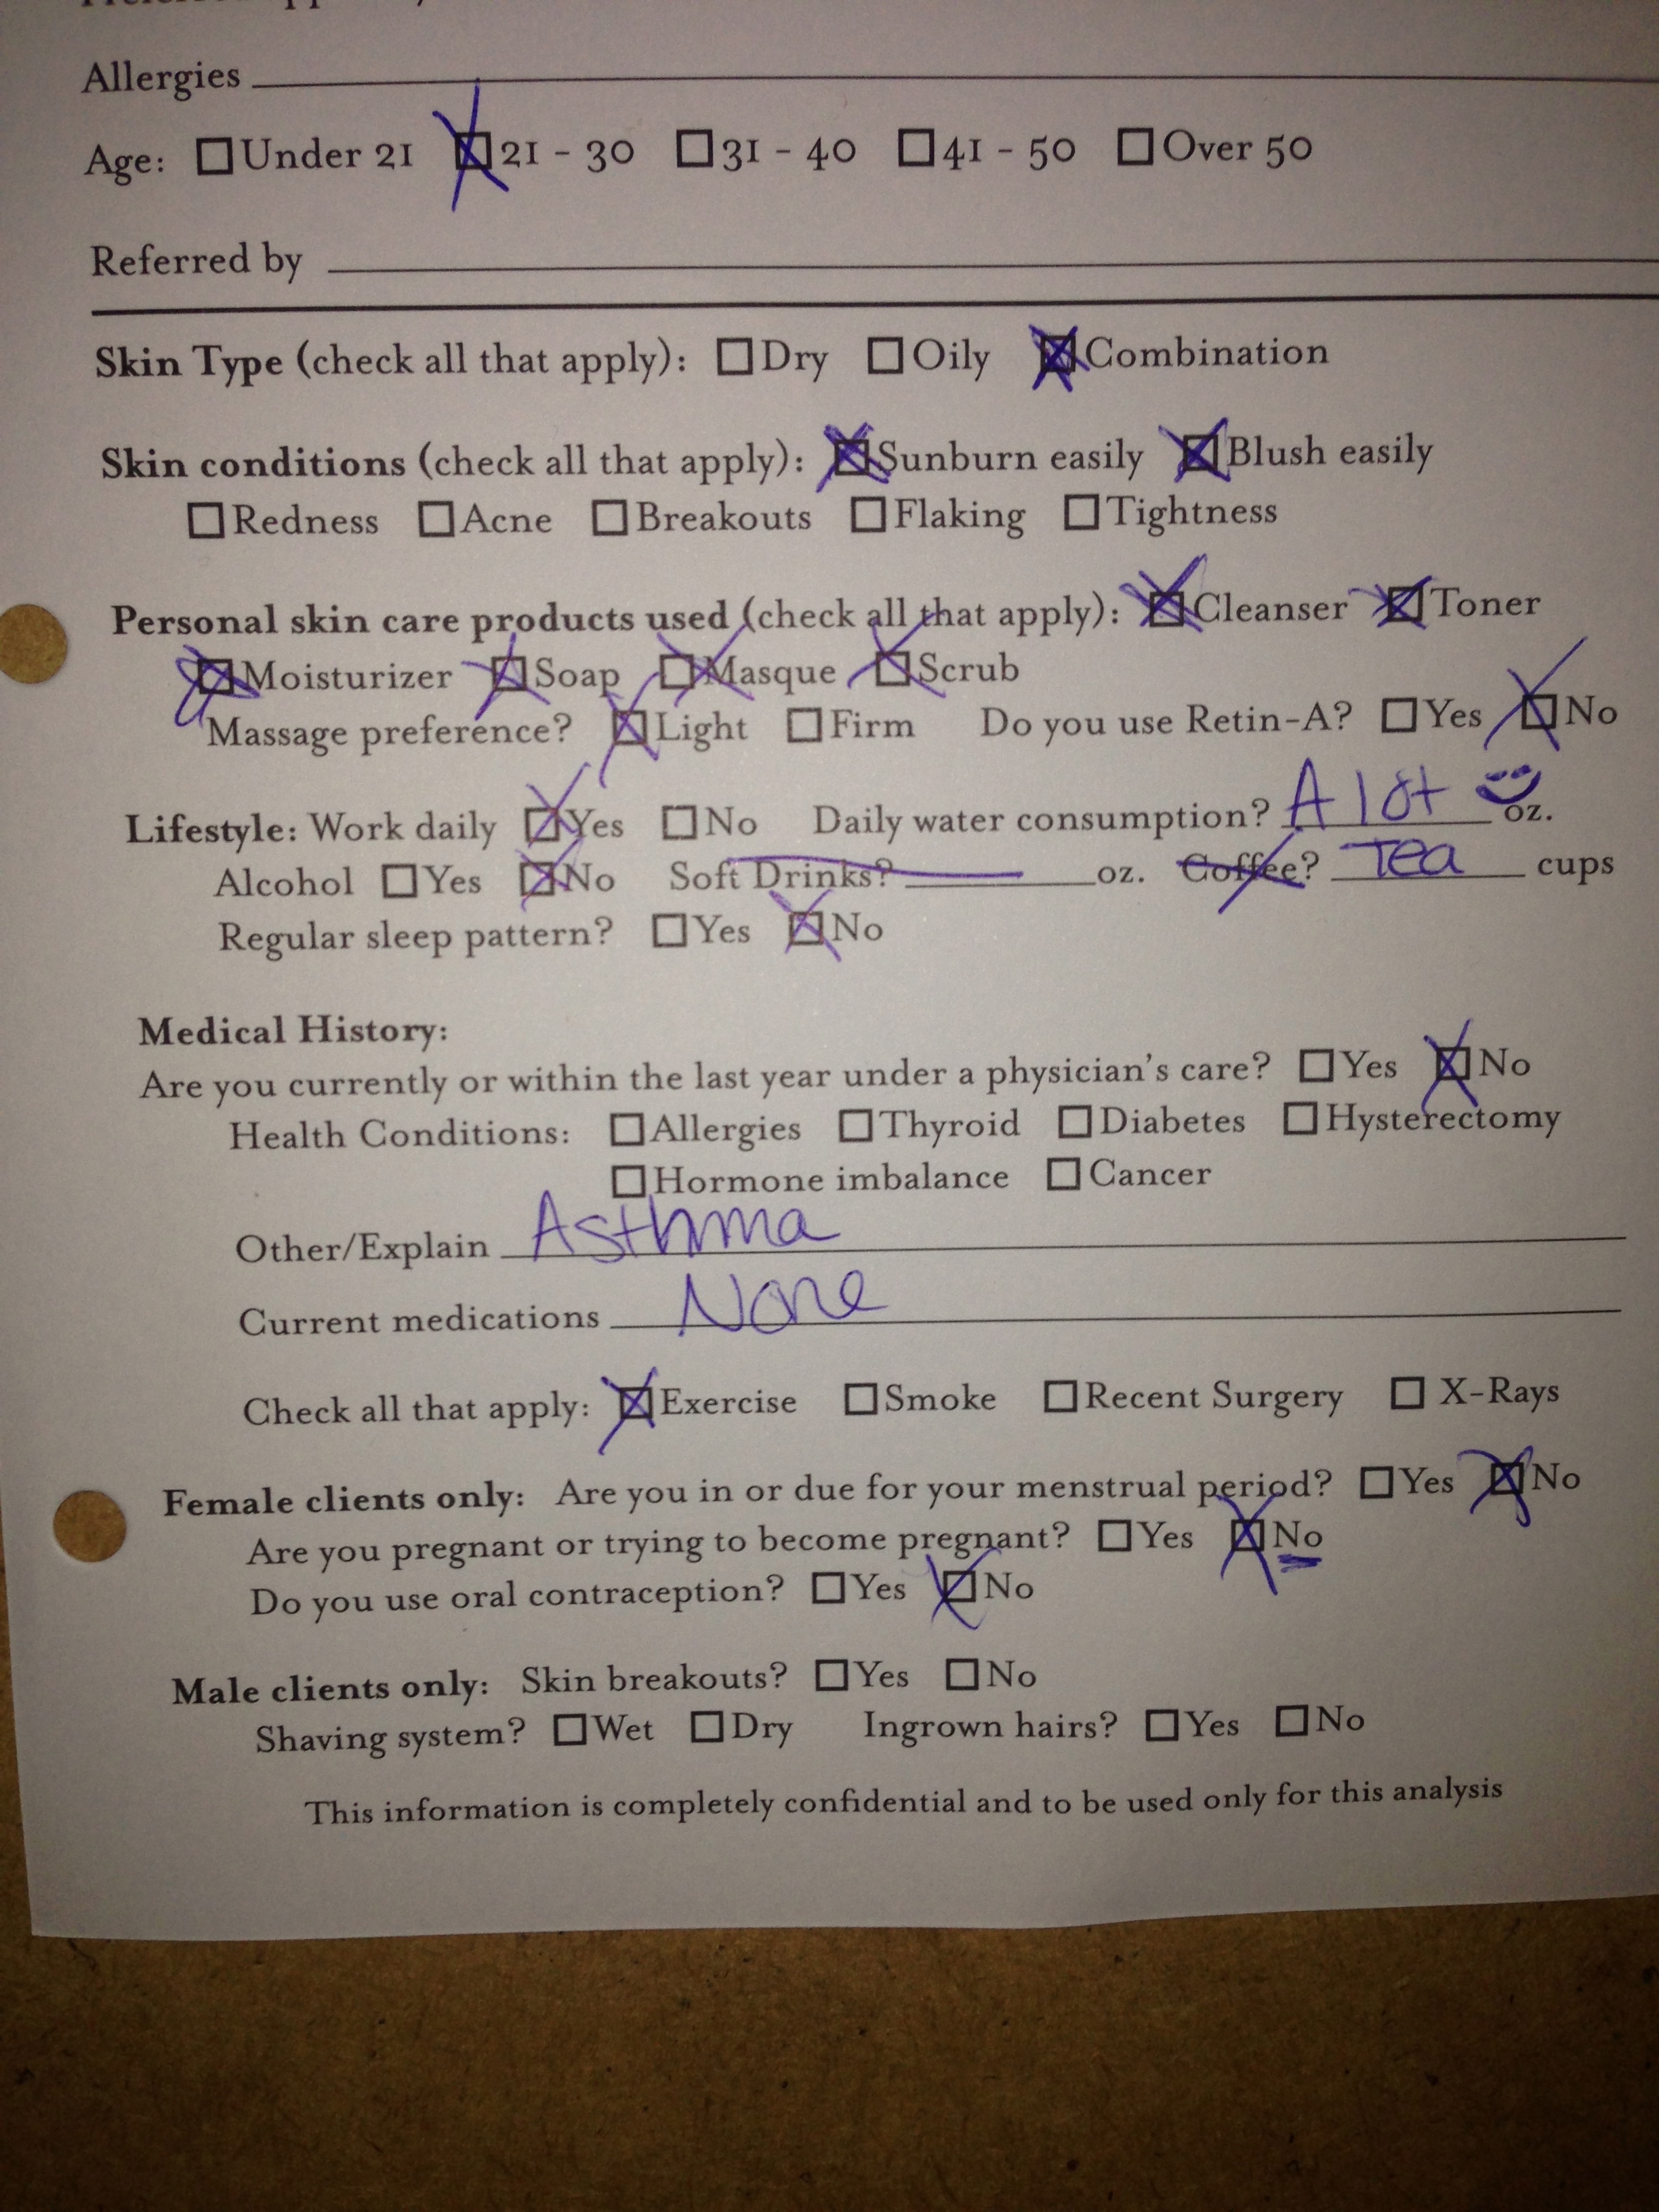 Allergies
Age: ☐Under 21 ☒21 - 30 ☐31 - 40 ☐41 - 50 ☐Over 50
Referred by
Skin Type (check all that apply): ☐Dry ☐Oily ☒Combination
Skin conditions (check all that apply): ☒Sunburn easily ☒Blush easily
☐Redness ☐Acne ☐Breakouts ☐Flaking ☐Tightness
Personal skin care products used (check all that apply): ☒Cleanser ☒Toner
☒Moisturizer ☒Soap ☒Masque ☒Scrub
Massage preference? ☒Light ☐Firm Do you use Retin-A? ☐Yes ☒No
Lifestyle: Work daily ☒Yes ☐No Daily water consumption? A lot oz.
Alcohol ☐Yes ☒No Soft Drinks? oz. Coffee? Tea cups
Regular sleep pattern? ☐Yes ☒No
Medical History:
Are you currently or within the last year under a physician's care? ☐Yes ☒No
Health Conditions: ☐Allergies ☐Thyroid ☐Diabetes ☐Hysterectomy
☐Hormone imbalance ☐Cancer
Other/Explain Asthma
Current medications None
Check all that apply: ☒Exercise ☐Smoke ☐Recent Surgery ☐ X-Rays
Female clients only: Are you in or due for your menstrual period? ☐Yes ☒No
Are you pregnant or trying to become pregnant? ☐Yes ☒No
Do you use oral contraception? ☐Yes ☒No
Male clients only: Skin breakouts? ☐Yes ☐No
Shaving system? ☐Wet ☐Dry Ingrown hairs? ☐Yes ☐No
This information is completely confidential and to be used only for this analysis